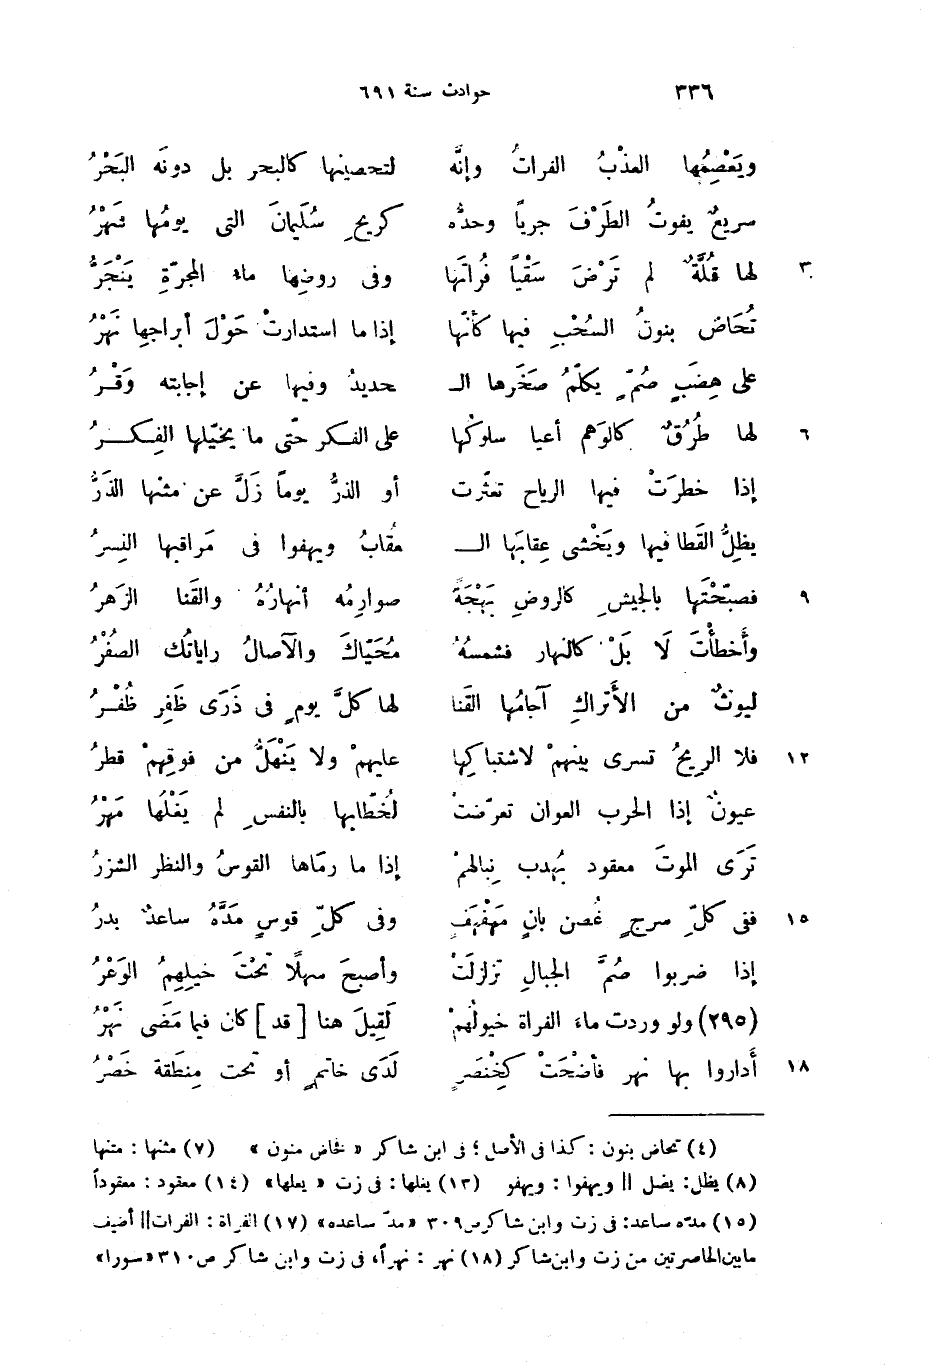 ٣٣٦ حوادث سنة ٦٩١
ويَعْصِمُها العذْبُ الفراتُ وإنَّه لتحصينها كالبحر بل دونَه البَحْرُ
سريعٌ يفوتُ الطَرْفَ جرياً وحدُّه كريحِ سُلَيمانَ التى يومُها شَهْرُ
٣ لها قُلَّةٌ لم تَرْضَ سَقْياً فُراتَها وفى روضِها ماء المجرّةِ يَنْجَرُّ
تُحَاضُ بنونُ السُحْبِ فيها كأنّها إذا ما استدارتْ حَوْلَ أبراجِها نَهْرُ
على هِضَبٍ صُمّ‍ٍ يكلّمُ صَخَرها الـ حديدُ وفيها عن إجابته وَقْرُ
٦ لها طُرُقٌ كالوَهم أعيا سلوكُها على الفكر حتّى ما يخيّلها الفِكرُ
إذا خطرَتْ فيها الرياح تعثّرت أو الذرُّ يوماً زَلَّ عن مثنها الذَرُّ
يظلُّ القَطا فيها ويَخْشى عِقابَها الـ عقابُ ويهفوا فى مَراقبها النِسرُ
٩ فصبّحْتَها بالجيشِ كالروضِ بَهْجَةً صوارِمُه أنهارُهُ والقَنا الزَهرُ
وأخطأْتَ لَا بَلْ كالنهار فشمسهُ مُحَيّاكَ والآصالُ راياتُك الصُفْرُ
ليوثٌ من الأَتراكِ آجامُها القَنا لها كلَّ يومٍ فى ذَرَى ظَفِرٍ ظُفْرُ
١٢ فلا الريحُ تسرى بينهمْ لاشتباكِها عليهمْ ولا يَنْهَلُّ من فوقِهمْ قطرُ
عيونٌ إذا الحرب العوان تعرّضتْ لخُطّابها بالنفسِ لم يَغْلُها مَهْرُ
تَرَى الموتَ معقود بهُدب نِبالهمْ إذا ما رمّاها القوسُ والنظر الشزرُ
١٥ ففى كلّ سرجٍ غُصن بانٍ مَهْفهَفٍ وفى كلّ قوسٍ مَدَّهُ ساعدٌ بدرُ
إذا ضربوا صُمَّ الجبالِ تزلزلتْ وأصبحَ سهلًا تحْتَ خيلِهِمُ الوَعْرُ
(٢٩٥) ولو وردت ماء الفراة خيولُهمْ لَقِيلَ هنا [قد] كان فيما مَضَى نَهْرُ
١٨ أداروا بها نهر فأضْحَتْ كَخِنْصَرٍ لَدَى خاتمٍ أو تحت مِنطَقة خَصْرُ
(٤) تحاض بنون : كذا فى الأصل ؛ فى ابن شاكر « تخاض متون » (٧) مثنها : متنها
(٨) يظل: يضل || ويهفوا : ويهفو (١٣) يغلها : فى زت « يعلها » (١٤) معقود : معقوداً
(١٥) مدّه ساعد: فى زت وابن شاكر ص٣٠٩ «مدّ ساعده» (١٧) الفراة : الفرات || أضيف
مابين الحاصرتين من زت وابن شاكر (١٨) نهر : نهراً، فى زت وابن شاكر ص٣١٠ «سورا»